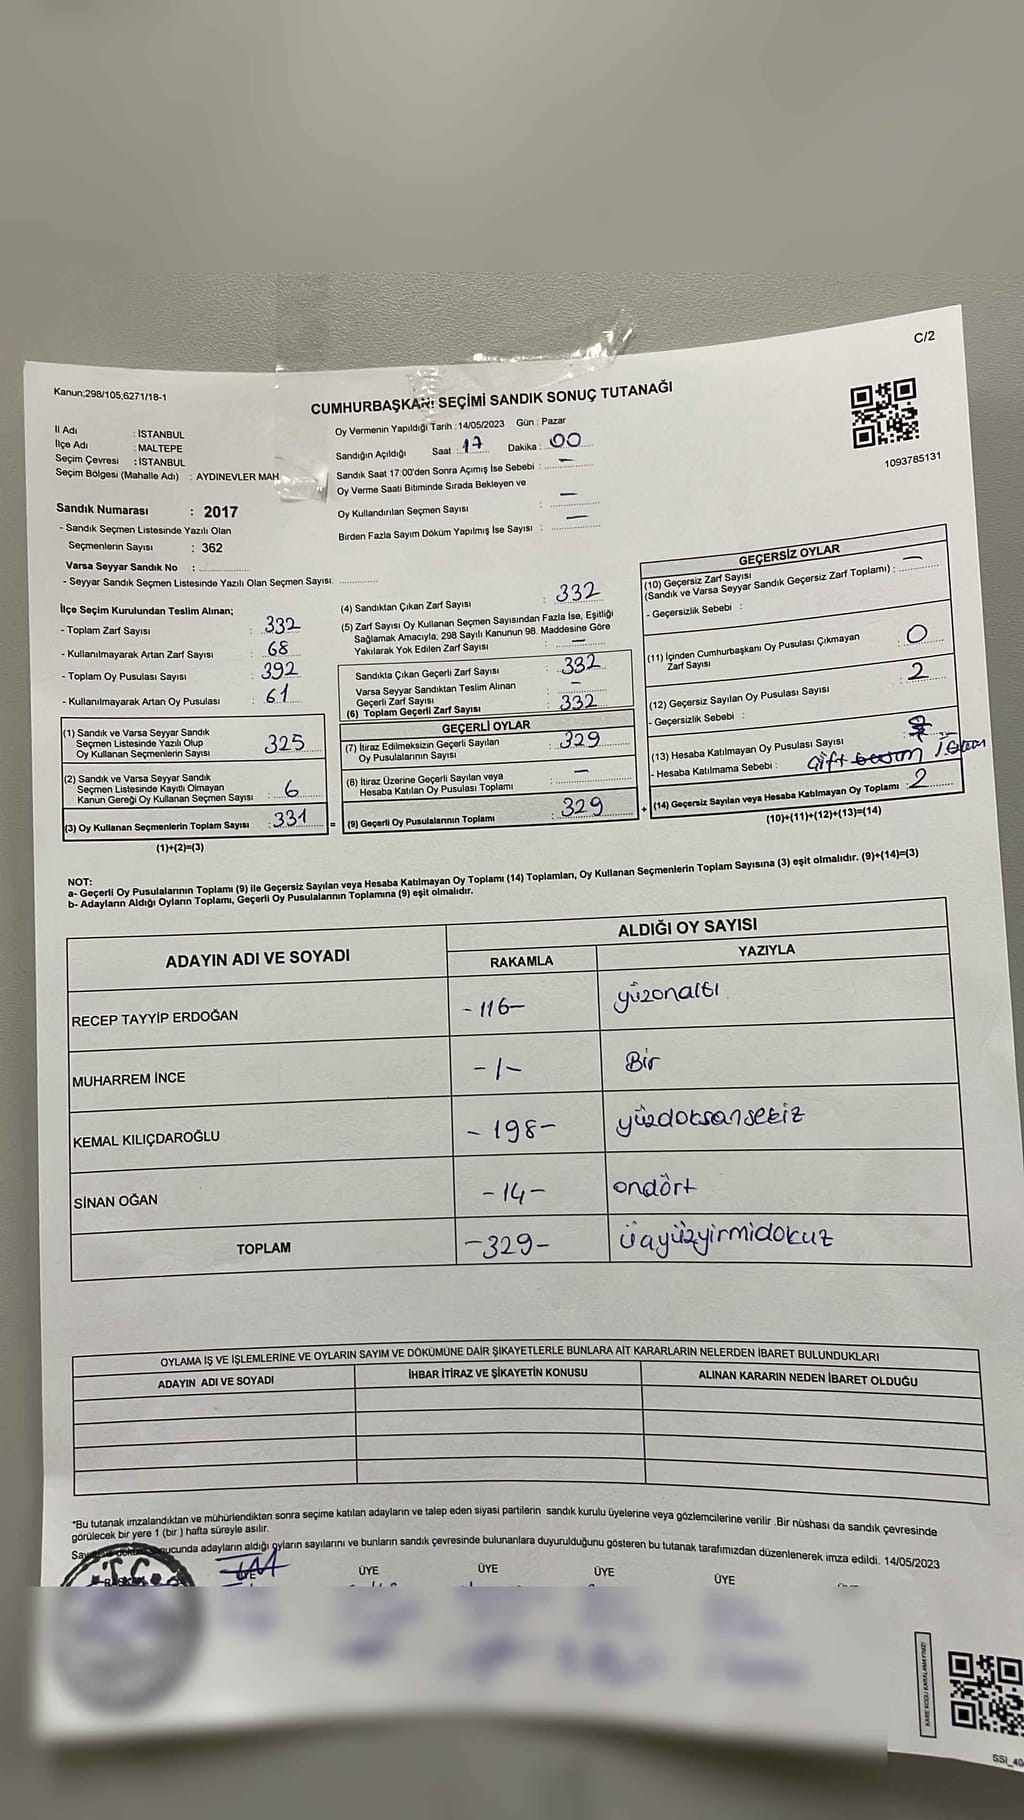 C/2
Kanun;298/105;6271/18-1
CUMHURBAŞKANI SEÇİMİ SANDIK SONUÇ TUTANAĞI
1093785131
İl Adı : İSTANBUL
İlçe Adı : MALTEPE
Seçim Çevresi : İSTANBUL
Seçim Bölgesi (Mahalle Adı) : AYDINEVLER MAH
Sandık Numarası : 2017
- Sandık Seçmen Listesinde Yazılı Olan
Seçmenlerin Sayısı : 362
Varsa Seyyar Sandık No :
- Seyyar Sandık Seçmen Listesinde Yazılı Olan Seçmen Sayısı:
Oy Vermenin Yapıldığı Tarih : 14/05/2023 Gün : Pazar
Sandığın Açıldığı Saat : 17 Dakika : 00
Sandık Saat 17:00'den Sonra Açımış İse Sebebi : —
Oy Verme Saati Bitiminde Sırada Bekleyen ve
Oy Kullandırılan Seçmen Sayısı : —
Birden Fazla Sayım Döküm Yapılmış İse Sayısı : —
İlçe Seçim Kurulundan Teslim Alınan;
- Toplam Zarf Sayısı : 332
- Kullanılmayarak Artan Zarf Sayısı : 68
- Toplam Oy Pusulası Sayısı : 392
- Kullanılmayarak Artan Oy Pusulası : 61
(1) Sandık ve Varsa Seyyar Sandık
Seçmen Listesinde Yazılı Olup
Oy Kullanan Seçmenlerin Sayısı : 325
(2) Sandık ve Varsa Seyyar Sandık
Seçmen Listesinde Kayıtlı Olmayan
Kanun Gereği Oy Kullanan Seçmen Sayısı : 6
(3) Oy Kullanan Seçmenlerin Toplam Sayısı : 331 =
(1)+(2)=(3)
(4) Sandıktan Çıkan Zarf Sayısı : 332
(5) Zarf Sayısı Oy Kullanan Seçmen Sayısından Fazla İse, Eşitliği
Sağlamak Amacıyla; 298 Sayılı Kanunun 98. Maddesine Göre
Yakılarak Yok Edilen Zarf Sayısı : —
Sandıkta Çıkan Geçerli Zarf Sayısı : 332
Varsa Seyyar Sandıktan Teslim Alınan
Geçerli Zarf Sayısı : —
(6) Toplam Geçerli Zarf Sayısı : 332
GEÇERLİ OYLAR
(7) İtiraz Edilmeksizin Geçerli Sayılan
Oy Pusulalarının Sayısı : 329
(8) İtiraz Üzerine Geçerli Sayılan veya
Hesaba Katılan Oy Pusulası Toplamı : —
(9) Geçerli Oy Pusulalarının Toplamı : 329 +
GEÇERSİZ OYLAR
(10) Geçersiz Zarf Sayısı
(Sandık ve Varsa Seyyar Sandık Geçersiz Zarf Toplamı) : —
- Geçersizlik Sebebi :
(11) İçinden Cumhurbaşkanı Oy Pusulası Çıkmayan
Zarf Sayısı : 0
(12) Geçersiz Sayılan Oy Pusulası Sayısı : 2
- Geçersizlik Sebebi :
(13) Hesaba Katılmayan Oy Pusulası Sayısı :
- Hesaba Katılmama Sebebi : çift
(14) Geçersiz Sayılan veya Hesaba Katılmayan Oy Toplamı : 2
(10)+(11)+(12)+(13)=(14)
NOT:
a- Geçerli Oy Pusulalarının Toplamı (9) ile Geçersiz Sayılan veya Hesaba Katılmayan Oy Toplamı (14) Toplamları, Oy Kullanan Seçmenlerin Toplam Sayısına (3) eşit olmalıdır. (9)+(14)=(3)
b- Adayların Aldığı Oyların Toplamı, Geçerli Oy Pusulalarının Toplamına (9) eşit olmalıdır.
ADAYIN ADI VE SOYADI
ALDIĞI OY SAYISI
RAKAMLA YAZIYLA
RECEP TAYYİP ERDOĞAN -116- yüzonaltı
MUHARREM İNCE -1- Bir
KEMAL KILIÇDAROĞLU -198- yüzdoksansekiz
SİNAN OĞAN -14- ondört
TOPLAM -329- üçyüzyirmidokuz
OYLAMA İŞ VE İŞLEMLERİNE VE OYLARIN SAYIM VE DÖKÜMÜNE DAİR ŞİKAYETLERLE BUNLARA AİT KARARLARIN NELERDEN İBARET BULUNDUKLARI
ADAYIN ADI VE SOYADI İHBAR İTİRAZ VE ŞİKAYETİN KONUSU ALINAN KARARIN NEDEN İBARET OLDUĞU
*Bu tutanak imzalandıktan ve mühürlendikten sonra seçime katılan adayların ve talep eden siyasi partilerin sandık kurulu üyelerine veya gözlemcilerine verilir .Bir nüshası da sandık çevresinde
görülecek bir yere 1 (bir ) hafta süreyle asılır.
adayların aldığı oyların sayılarını ve bunların sandık çevresinde bulunanlara duyurulduğunu gösteren bu tutanak tarafımızdan düzenlenerek imza edildi. 14/05/2023
T.C.
ÜYE ÜYE ÜYE ÜYE
KARE KODU KARALAMAYINIZ!